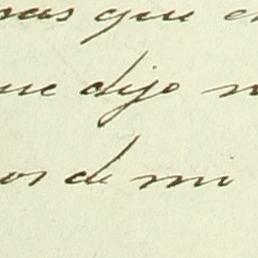 sas que e
ue dijo n
os de mi